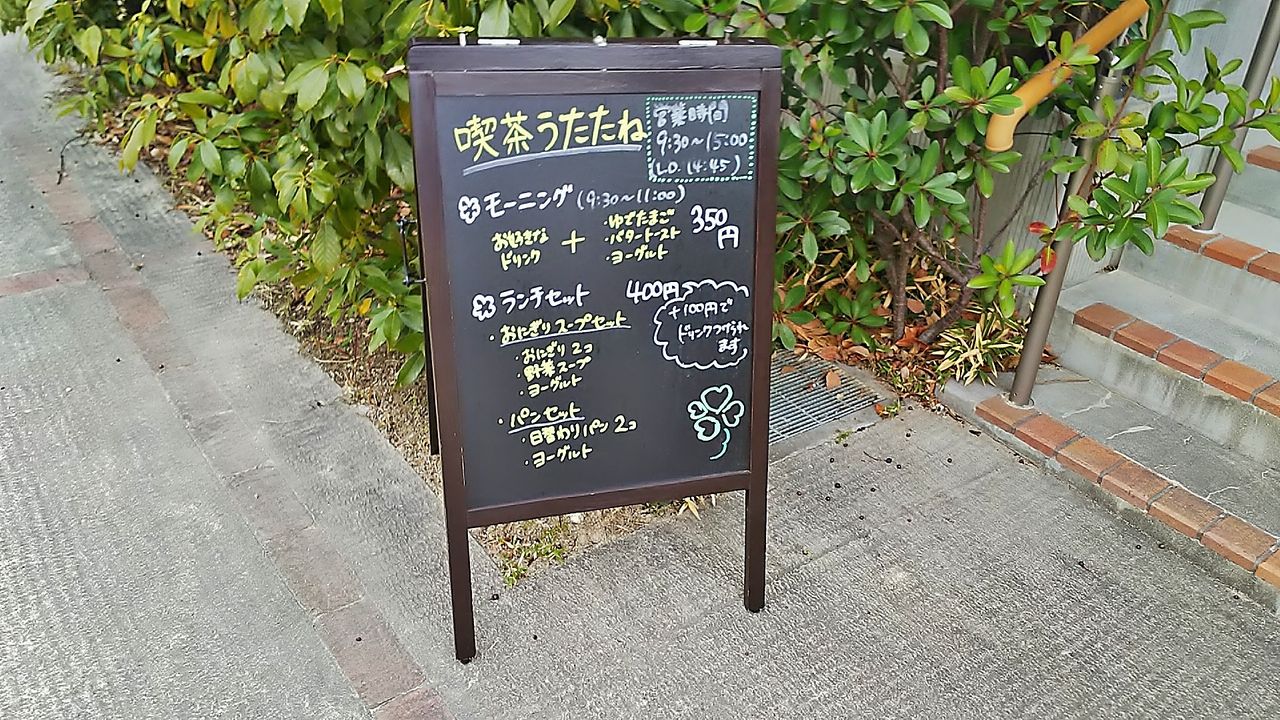 喫茶うたたね
営業時間
9:30～15:00
(L.O. 14:45)
モーニング (9:30～11:00)
お好きな
ドリンク
＋
・ゆでたまご
・バタートースト
・ヨーグルト
350
円
ランチセット 400円
・おにぎりスープセット
・おにぎり 2コ
・野菜スープ
・ヨーグルト
+100円で
ドリンクつけられ
ます
・パンセット
・日替わりパン 2コ
・ヨーグルト